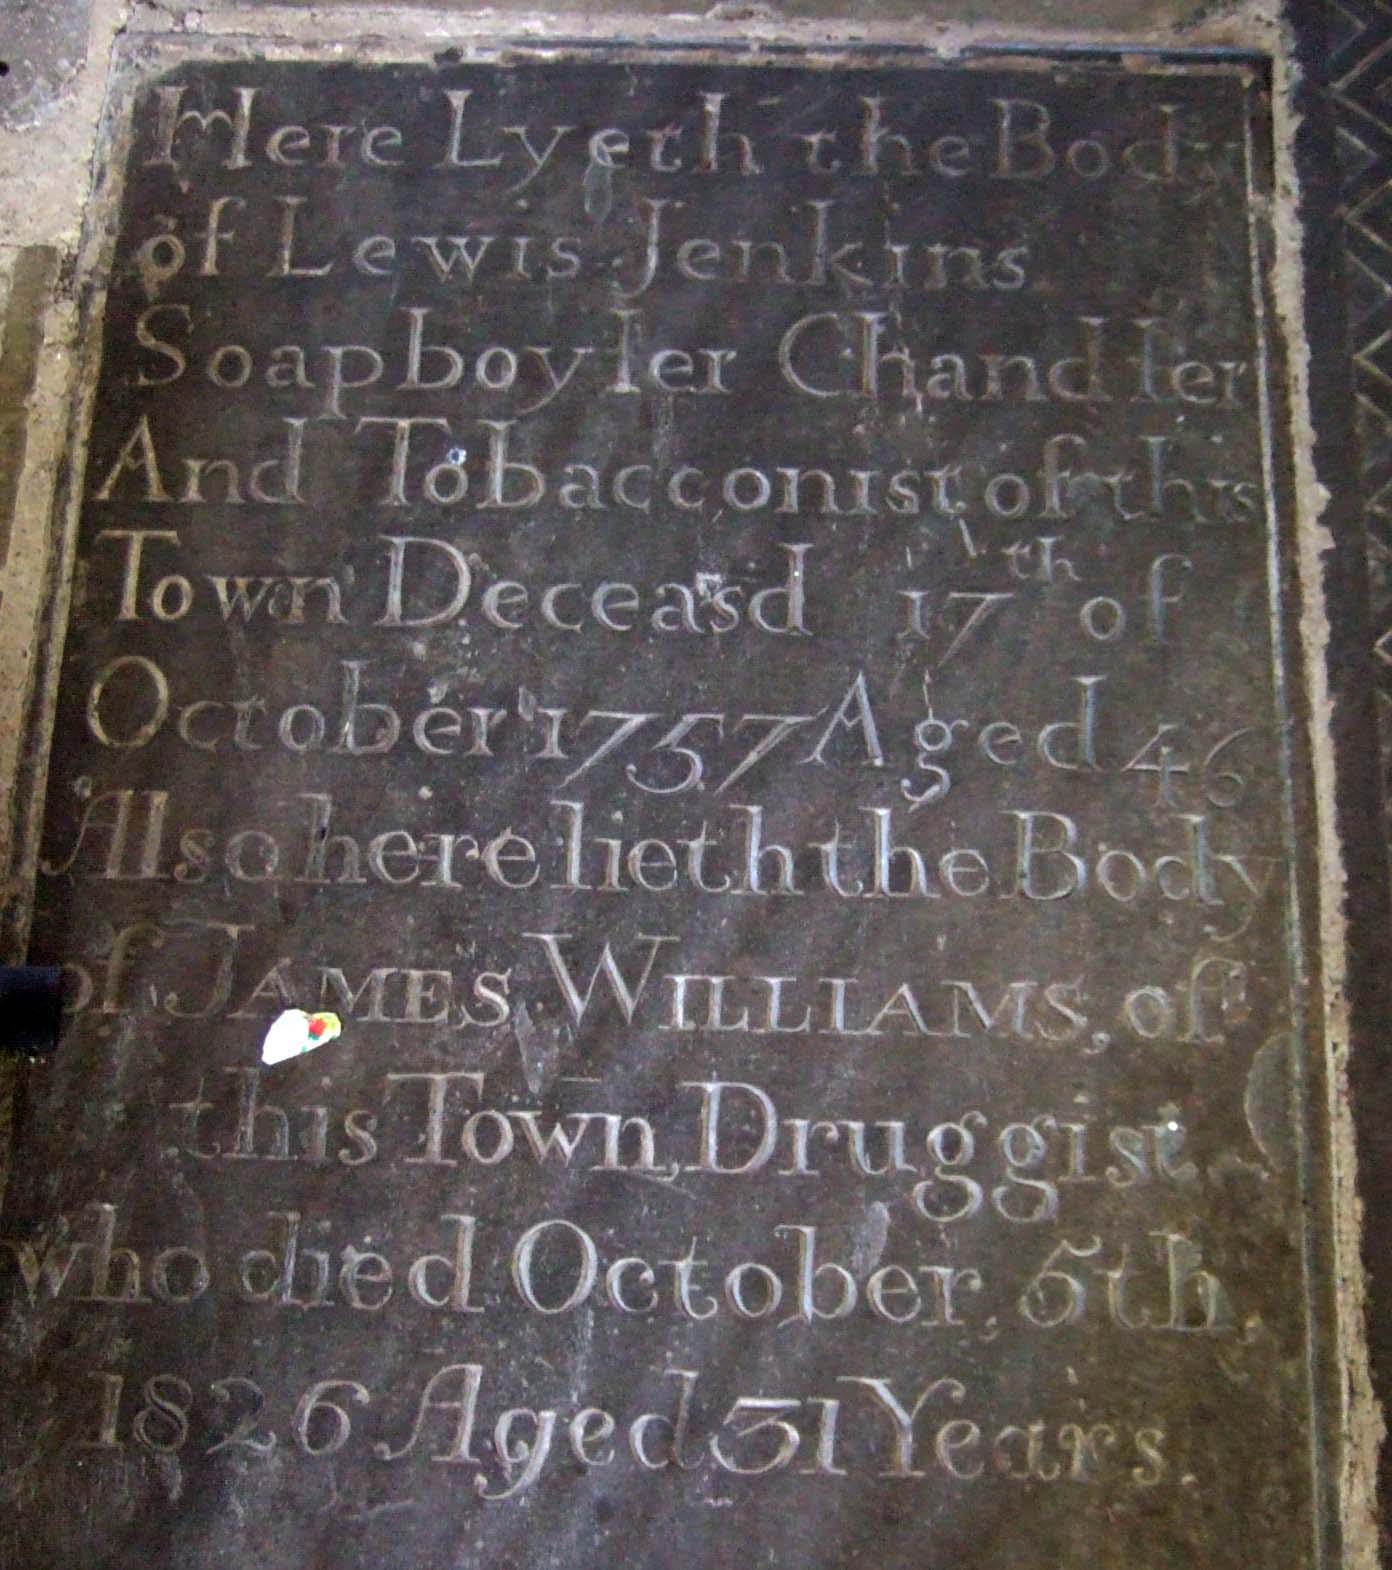 Here Lyeth the Body
of Lewis Jenkins
Soapboyler Chandler
And Tobacconist of this
Town Deceas'd 17th of
October 1757 Aged 46
Also here lieth the Body
of JAMES WILLIAMS, of
this Town, Druggist
who died October, 5th,
1826 Aged 31 Years.